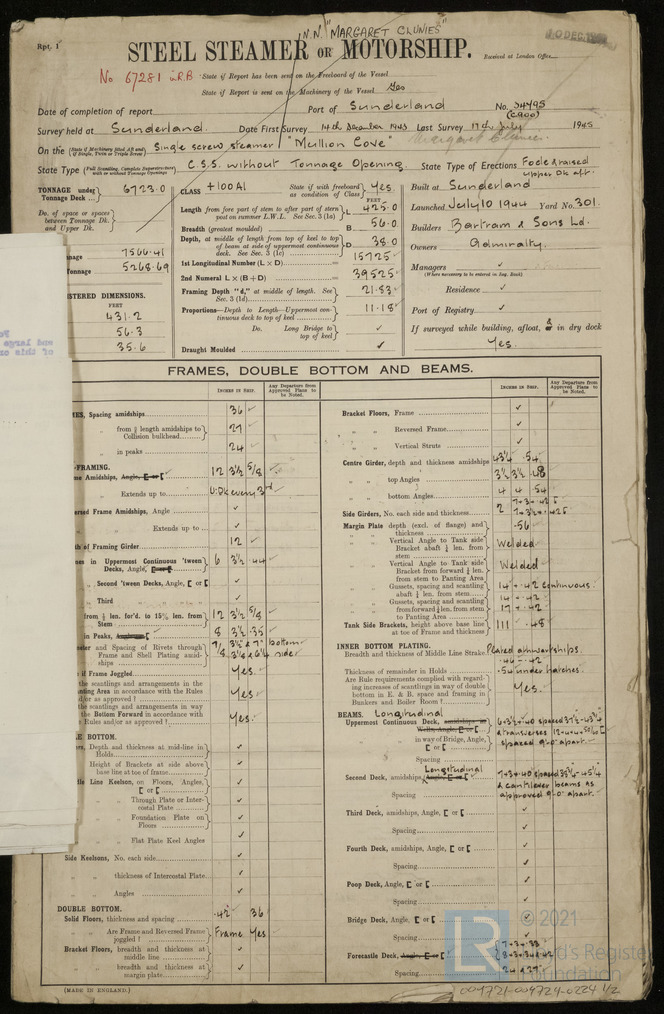 N.N. "MARGARET CLUNIES"
Rpt. 1
STEEL STEAMER OR MOTORSHIP.
Received at London Office
10 DEC.
No 67281
State if Report has been sent on the Freeboard of the Vessel
State if Report is sent on the Machinery of the Vessel Yes
Date of completion of report Port of Sunderland No. 34795
(C900)
Survey held at Sunderland. Date First Survey 14th December 1943 Last Survey 17th July 1945
Margaret Clunies
On the (State if Machinery fitted Aft and if Single, Twin or Triple Screw) Single screw steamer "Mullion Cove"
State Type (Full Scantling, Complete Superstructure with or without Tonnage Openings) C.S.S. without Tonnage Opening State Type of Erections Focle & raised
upper Dk aft.
TONNAGE under Tonnage Deck ... 6723.0
Do. of space or spaces between Tonnage Dk. and Upper Dk.
nnage 7566.41
Tonnage 5268.69
STERED DIMENSIONS.
FEET
431.2
56.3
35.6
CLASS +100A1 State if with freeboard as condition of Class Yes
FEET
Length from fore part of stem to after part of stern post on summer L.W.L. See Sec. 3 (1a) L 425.0
Breadth (greatest moulded) B 56.0
Depth, at middle of length from top of keel to top of beam at side of uppermost continuous deck. See Sec. 3 (1c) D 38.0
1st Longitudinal Number (L × D) 15725
2nd Numeral L × (B + D) 39525
Framing Depth "d," at middle of length. See Sec. 3 (1d) 21.83
Proportions—Depth to Length—Uppermost continuous deck to top of keel 11.18
Do. Long Bridge to top of keel ✓
Draught Moulded ✓
Built at Sunderland
Launched July 10 1944 Yard No. 301.
Builders Bartram & Sons Ld.
Owners Admiralty.
Managers ✓
(Where necessary to be entered in Reg. Book)
Residence ✓
Port of Registry ✓
If surveyed while building, afloat, & in dry dock
Yes.
FRAMES, DOUBLE BOTTOM AND BEAMS.
INCHES IN SHIP. Any Departure from Approved Plans to be Noted.
MES, Spacing amidships 36 ✓
from ⅗ length amidships to Collision bulkhead 27 ✓
in peaks 24 ✓
-FRAMING.
me Amidships, Angle, [ or [ 12 3½ 5/8 ✓
Extends up to U.Dk every 3rd
rsed Frame Amidships, Angle ✓
Extends up to ✓
th of Framing Girder 12 ✓
mes in Uppermost Continuous 'tween Decks, Angle, [ or [ 6 3½ .44
" Second 'tween Decks, Angle, [ or [ ✓
" Third " " " ✓
from ⅕ len. for'd. to 15% len. from Stem 12 3½ 5/8
in Peaks, Angle or [ 8 3½ .35
eter and Spacing of Rivets through Frame and Shell Plating amidships 7/8 3½ & 7" bottom
7/8 3½ & 6¼ side
if Frame Joggled Yes.
the scantlings and arrangements in the nting Area in accordance with the Rules d/or as approved ? Yes ✓
the scantlings and arrangements in way the Bottom Forward in accordance with Rules and/or as approved ? Yes. ✓
LE BOTTOM.
rs, Depth and thickness at mid-line in Holds ✓
Height of Brackets at side above base line at toe of frame ✓
tle Line Keelson, on Floors, Angles, [ or [ ✓
Through Plate or Intercostal Plate ✓
Foundation Plate on Floors ✓
Flat Plate Keel Angles ✓
Side Keelsons, No. each side ✓
" " thickness of Intercostal Plate ✓
" " Angles ✓
DOUBLE BOTTOM.
Solid Floors, thickness and spacing .42 36
" " Are Frame and Reversed Frame joggled ? Frame Yes
Bracket Floors, breadth and thickness at middle line ✓
" " breadth and thickness at margin plate ✓
(MADE IN ENGLAND.)
INCHES IN SHIP. Any Departure from Approved Plans to be Noted.
Bracket Floors, Frame ✓
" " Reversed Frame ✓
" " Vertical Struts ✓
Centre Girder, depth and thickness amidships 43¼ .54
" " top Angles 3½ 3½ .48
" " bottom Angles 4 4 .54
Side Girders, No. each side and thickness 2
Margin Plate depth (excl. of flange) and thickness .56
" " Vertical Angle to Tank side Bracket abaft ¼ len. from stem Welded
" " Vertical Angle to Tank side Bracket from forward ¼ len. from stem to Panting Area Welded
" " Gussets, spacing and scantling abaft ¼ len. from stem 14 .42 continuous.
" " Gussets, spacing and scantling from forward ¼ len. from stem to Panting Area 17 .42
Tank Side Brackets, height above base line at toe of Frame and thickness 111 .48
INNER BOTTOM PLATING.
Breadth and thickness of Middle Line Strake Plated athwartships.
.46 - .42
Thickness of remainder in Holds .54 under hatches.
Are Rule requirements complied with regarding increases of scantlings in way of double bottom in E. & B. space and framing in Bunkers and Boiler Room ? Yes.
BEAMS. Longitudinal
Uppermost Continuous Deck, amidships in Wells, Angle, [ or [
& transverses
spaced 9'-0" apart.
" " in way of Bridge, Angle, [ or [
Spacing
Longitudinal
Second Deck, amidships, Angle, [ or [
& cantilever beams as
Spacing approved 9'-0" apart.
Third Deck, amidships, Angle, [ or [ ✓
Spacing ✓
Fourth Deck, amidships, Angle, [ or [ ✓
Spacing ✓
Poop Deck, Angle, [ or [ ✓
Spacing ✓
Bridge Deck, Angle, [ or [ ✓
Spacing ✓
Forecastle Deck, Angle, [ or [ 7 . 3 . 38
Spacing 24 & 27
LR © 2021
Lloyd's Register
Foundation
004721-004724-0224 1/2